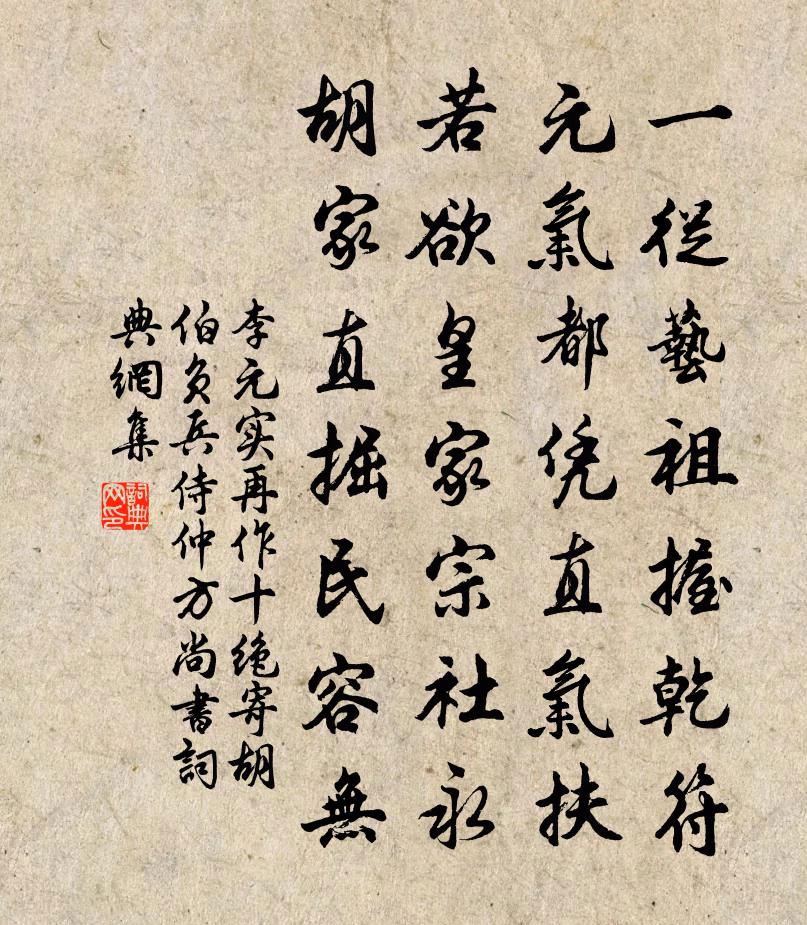 一從藝祖握乾符
元氣都凭直氣扶
若欲皇家宗社永
胡家直掘民容無
李元实再作十绝寄胡
伯负兵侍仲方尚書詞
典網集
詞典网印